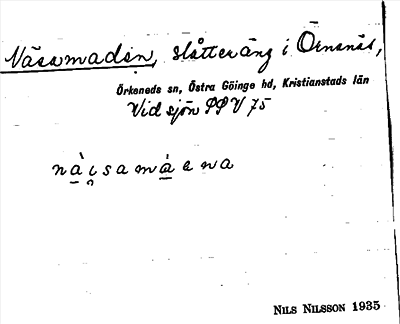 Näsamaden, slåtteräng i Örnanäs,
Örkeneds sn, Östra Göinge hd, Kristianstads län
Vid sjön PPV 75
nàısamáena
NILS NILSSON 1935